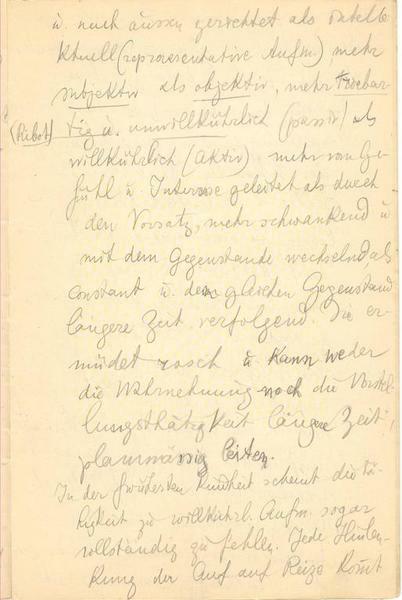 u. nach äussen gerichtet als intelle
ktuell (representative Aufm.) mehr
subjektiv als objektiv, mehr
(Ribot) tig u. unwillkührlich (passiv) als
willkührlich (aktiv) mehr vom Ge-
fühl u. Interesse geleitet als durch
den Vorsatz, mehr schwankend u
mit dem Gegenstande wechselnd als
constant u. den gleichen Gegenstand
längere Zeit verfolgend. Sie er-
müdet rasch u. kann weder
die Wahrnehmung noch die Vorstel-
lungsthätigkeit längere Zeit
planmässig leiten.
In der frühesten Kindheit scheint die Fä-
higkeit zu willkührl. Aufm. sogar
vollständig zu fehlen. Jede Hinlen-
kung der Auf auf Reize kommt